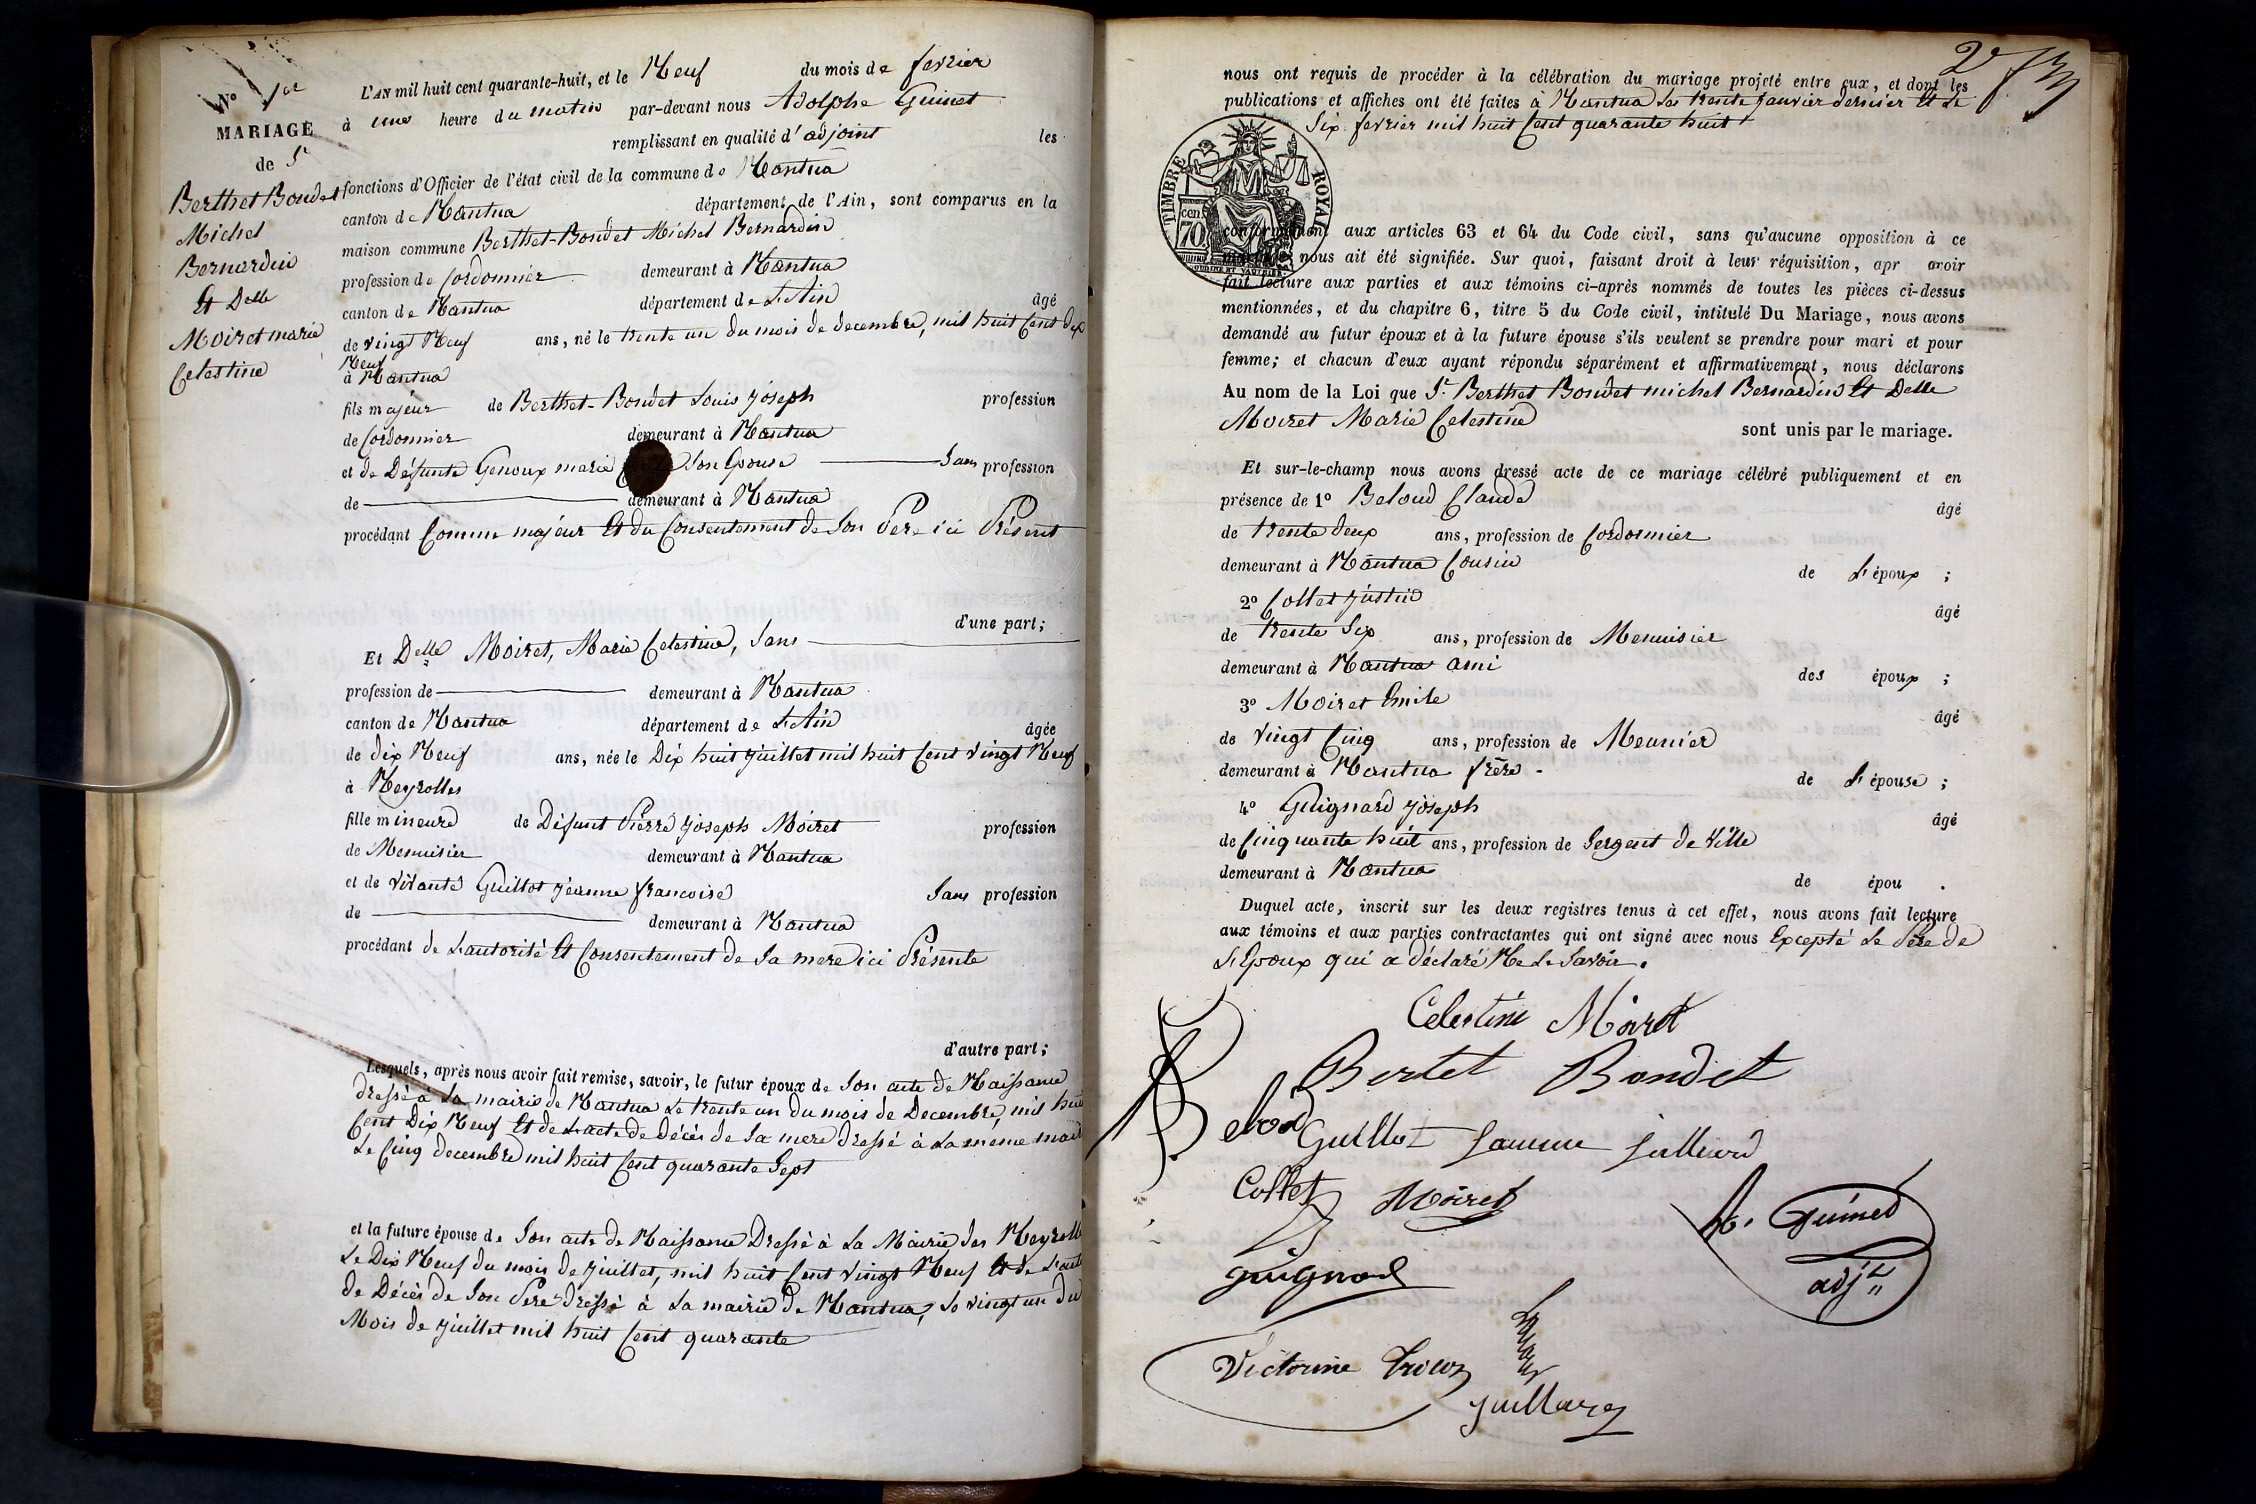 No 1er
MARIAGE
de Sr
Berthet Boudet
Michel
Bernardin
Et Delle
Moiret marie
Celestine
L'AN mil huit cent quarante-huit, et le Neuf du mois de fevrier
à une heure du matin par-devant nous Adolphe Guinet
remplissant en qualité d'adjoint les
fonctions d'Officier de l'état civil de la commune de Nantua
canton de Nantua département de l'Ain, sont comparus en la
maison commune Berthet-Boudet Michel Bernardin
profession de Cordonnier demeurant à Nantua
canton de Nantua département de L'Ain âgé
de vingt Neuf ans, né le trente un du mois de decembre, mil huit Cent dix
Neuf
à Nantua
fils majeur de Berthet-Boudet Louis joseph profession
de Cordonnier demeurant à Nantua
et de Défunte Genoux marie Son Epouse Sans profession
de demeurant à Nantua
procédant Comme majeur Et du Consentement de Son Pere ici Présent
d'une part;
Et Delle Moiret, Marie Celestine, Sans
profession de demeurant à Nantua
canton de Nantua département de L'Ain âgée
de dix Neuf ans, née le Dix huit juillet mil huit Cent vingt Neuf
à Neyrolles
fille mineure de Défunt Pierre joseph Moiret profession
de Menuisier demeurant à Nantua
et de vivante Guillot jeanne francoise Sans profession
de demeurant à Nantua
procédant de L'autorité Et Consentement de Sa mere ici Présente
d'autre part;
Lesquels, après nous avoir fait remise, savoir, le futur époux de Son acte de Naissance
dressé à La mairie de Nantua Le trente un du mois de Decembre, mil huit
Cent Dix Neuf Et de L'acte de Décès de Sa mere dressé à La meme mairie
Le Cinq decembre mil huit Cent quarante Sept
et la future épouse de Son acte de Naissance Dressé à La Mairie des Neyrolles
Le Dix Neuf du mois de juillet, mil huit Cent vingt Neuf Et de L'acte
de Décès de Son Pere dressé à La mairie de Nantua, Le vingt un du
Mois de juillet mil huit Cent quarante
2e
nous ont requis de procéder à la célébration du mariage projeté entre eux, et dont les
publications et affiches ont été faites à Nantua Les trente janvier dernier Et Le
Six fevrier mil huit Cent quarante huit
TIMBRE ROYAL
cen. 70
conformément aux articles 63 et 64 du Code civil, sans qu'aucune opposition à ce
mariage nous ait été signifiée. Sur quoi, faisant droit à leur réquisition, apr avoir
fait lecture aux parties et aux témoins ci-après nommés de toutes les pièces ci-dessus
mentionnées, et du chapitre 6, titre 5 du Code civil, intitulé Du Mariage, nous avons
demandé au futur époux et à la future épouse s'ils veulent se prendre pour mari et pour
femme; et chacun d'eux ayant répondu séparément et affirmativement, nous déclarons
Au nom de la Loi que Sr. Berthet Boudet michel Bernardin Et Delle
Moiret Marie Celestine sont unis par le mariage.
Et sur-le-champ nous avons dressé acte de ce mariage célébré publiquement et en
présence de 1o Beloud Claude âgé
de trente deux ans, profession de Cordonnier
demeurant à Nantua Cousin de L'époux ;
2o Collet justin âgé
de trente Six ans, profession de Menuisier
demeurant à Nantua ami des époux ;
3o Moiret Emile âgé
de vingt Cinq ans, profession de Meunier
demeurant à Nantua frère de L'épouse ;
4o Guignard joseph âgé
de Cinquante huit ans, profession de Sergent de Ville
demeurant à Nantua de épou .
Duquel acte, inscrit sur les deux registres tenus à cet effet, nous avons fait lecture
aux témoins et aux parties contractantes qui ont signé avec nous Excepté Le Père de
L'Epoux qui a déclaré Ne Le Savoir.
Celestine Moiret
Bertet Bondet
Guillot
Collet Moiret
A. Guinet
adjt
guignard
Victorine